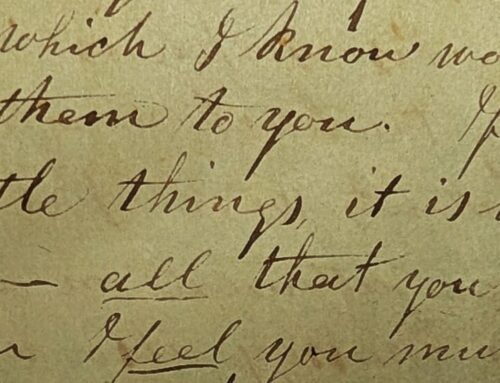 which I know wo
them to you. If
tle things, it is
— all that you
I feel you mu